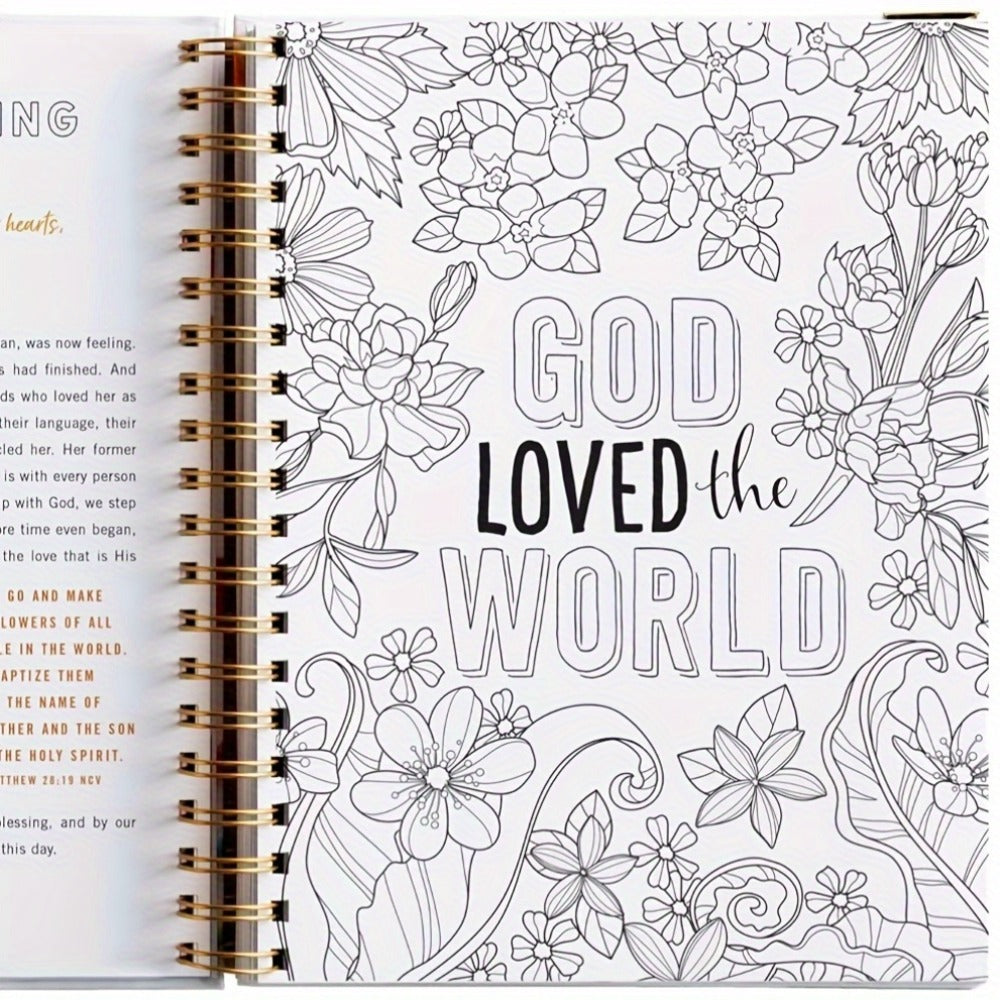 ING
hearts,
an, was now feeling.
s had finished. And
ds who loved her as
their language, their
cled her. Her former
is with every person
p with God, we step
ore time even began,
the love that is His
GO AND MAKE
LOWERS OF ALL
LE IN THE WORLD.
APTIZE THEM
THE NAME OF
THER AND THE SON
THE HOLY SPIRIT.
TTHEW 28:19 NCV
lessing, and by our
this day.
GOD
LOVED the
WORLD